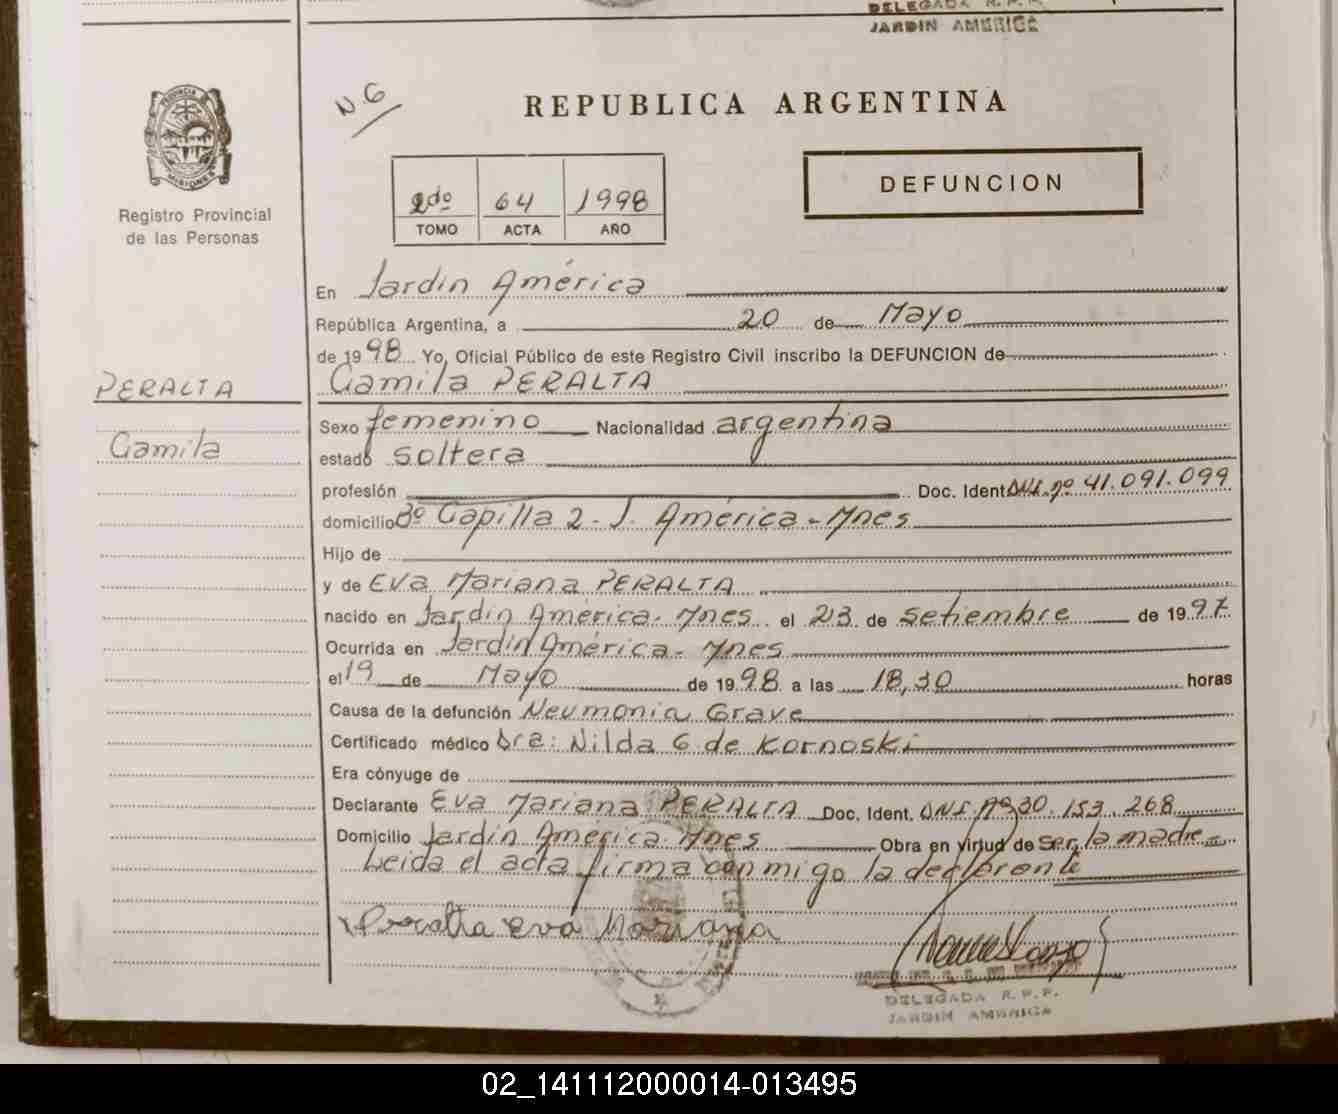 DELEGADA R.P.P.
JARDIN AMERICA
PROVINCIA
MISIONES
Registro Provincial
de las Personas
N 6
REPUBLICA ARGENTINA
2do 64 1998
TOMO ACTA AÑO
DEFUNCION
En Jardin América
República Argentina, a 20 de Mayo
de 1998 Yo, Oficial Público de este Registro Civil inscribo la DEFUNCION de
PERALTA
Camila PERALTA
Camila
Sexo femenino Nacionalidad argentina
estado soltera
profesión Doc. Ident. DNI. nº 41.091.099
domicilio Bº Capilla 2 - J. América - Mnes
Hijo de
y de Eva Mariana PERALTA
nacido en Jardin América - Mnes el 23 de setiembre de 1997
Ocurrida en Jardin América - Mnes
el 19 de Mayo de 1998 a las 18,30 horas
Causa de la defunción Neumonia Grave
Certificado médico Dra: Nilda G de Kornoski
Era cónyuge de
Declarante Eva Mariana PERALTA Doc. Ident. DNI Nº 30.153.268
Domicilio Jardin América - Mnes Obra en virtud de ser la madre
Leida el acta firma conmigo la declarante
Peralta Eva Mariana
DELEGADA R.P.P.
JARDIN AMERICA
02_141112000014-013495